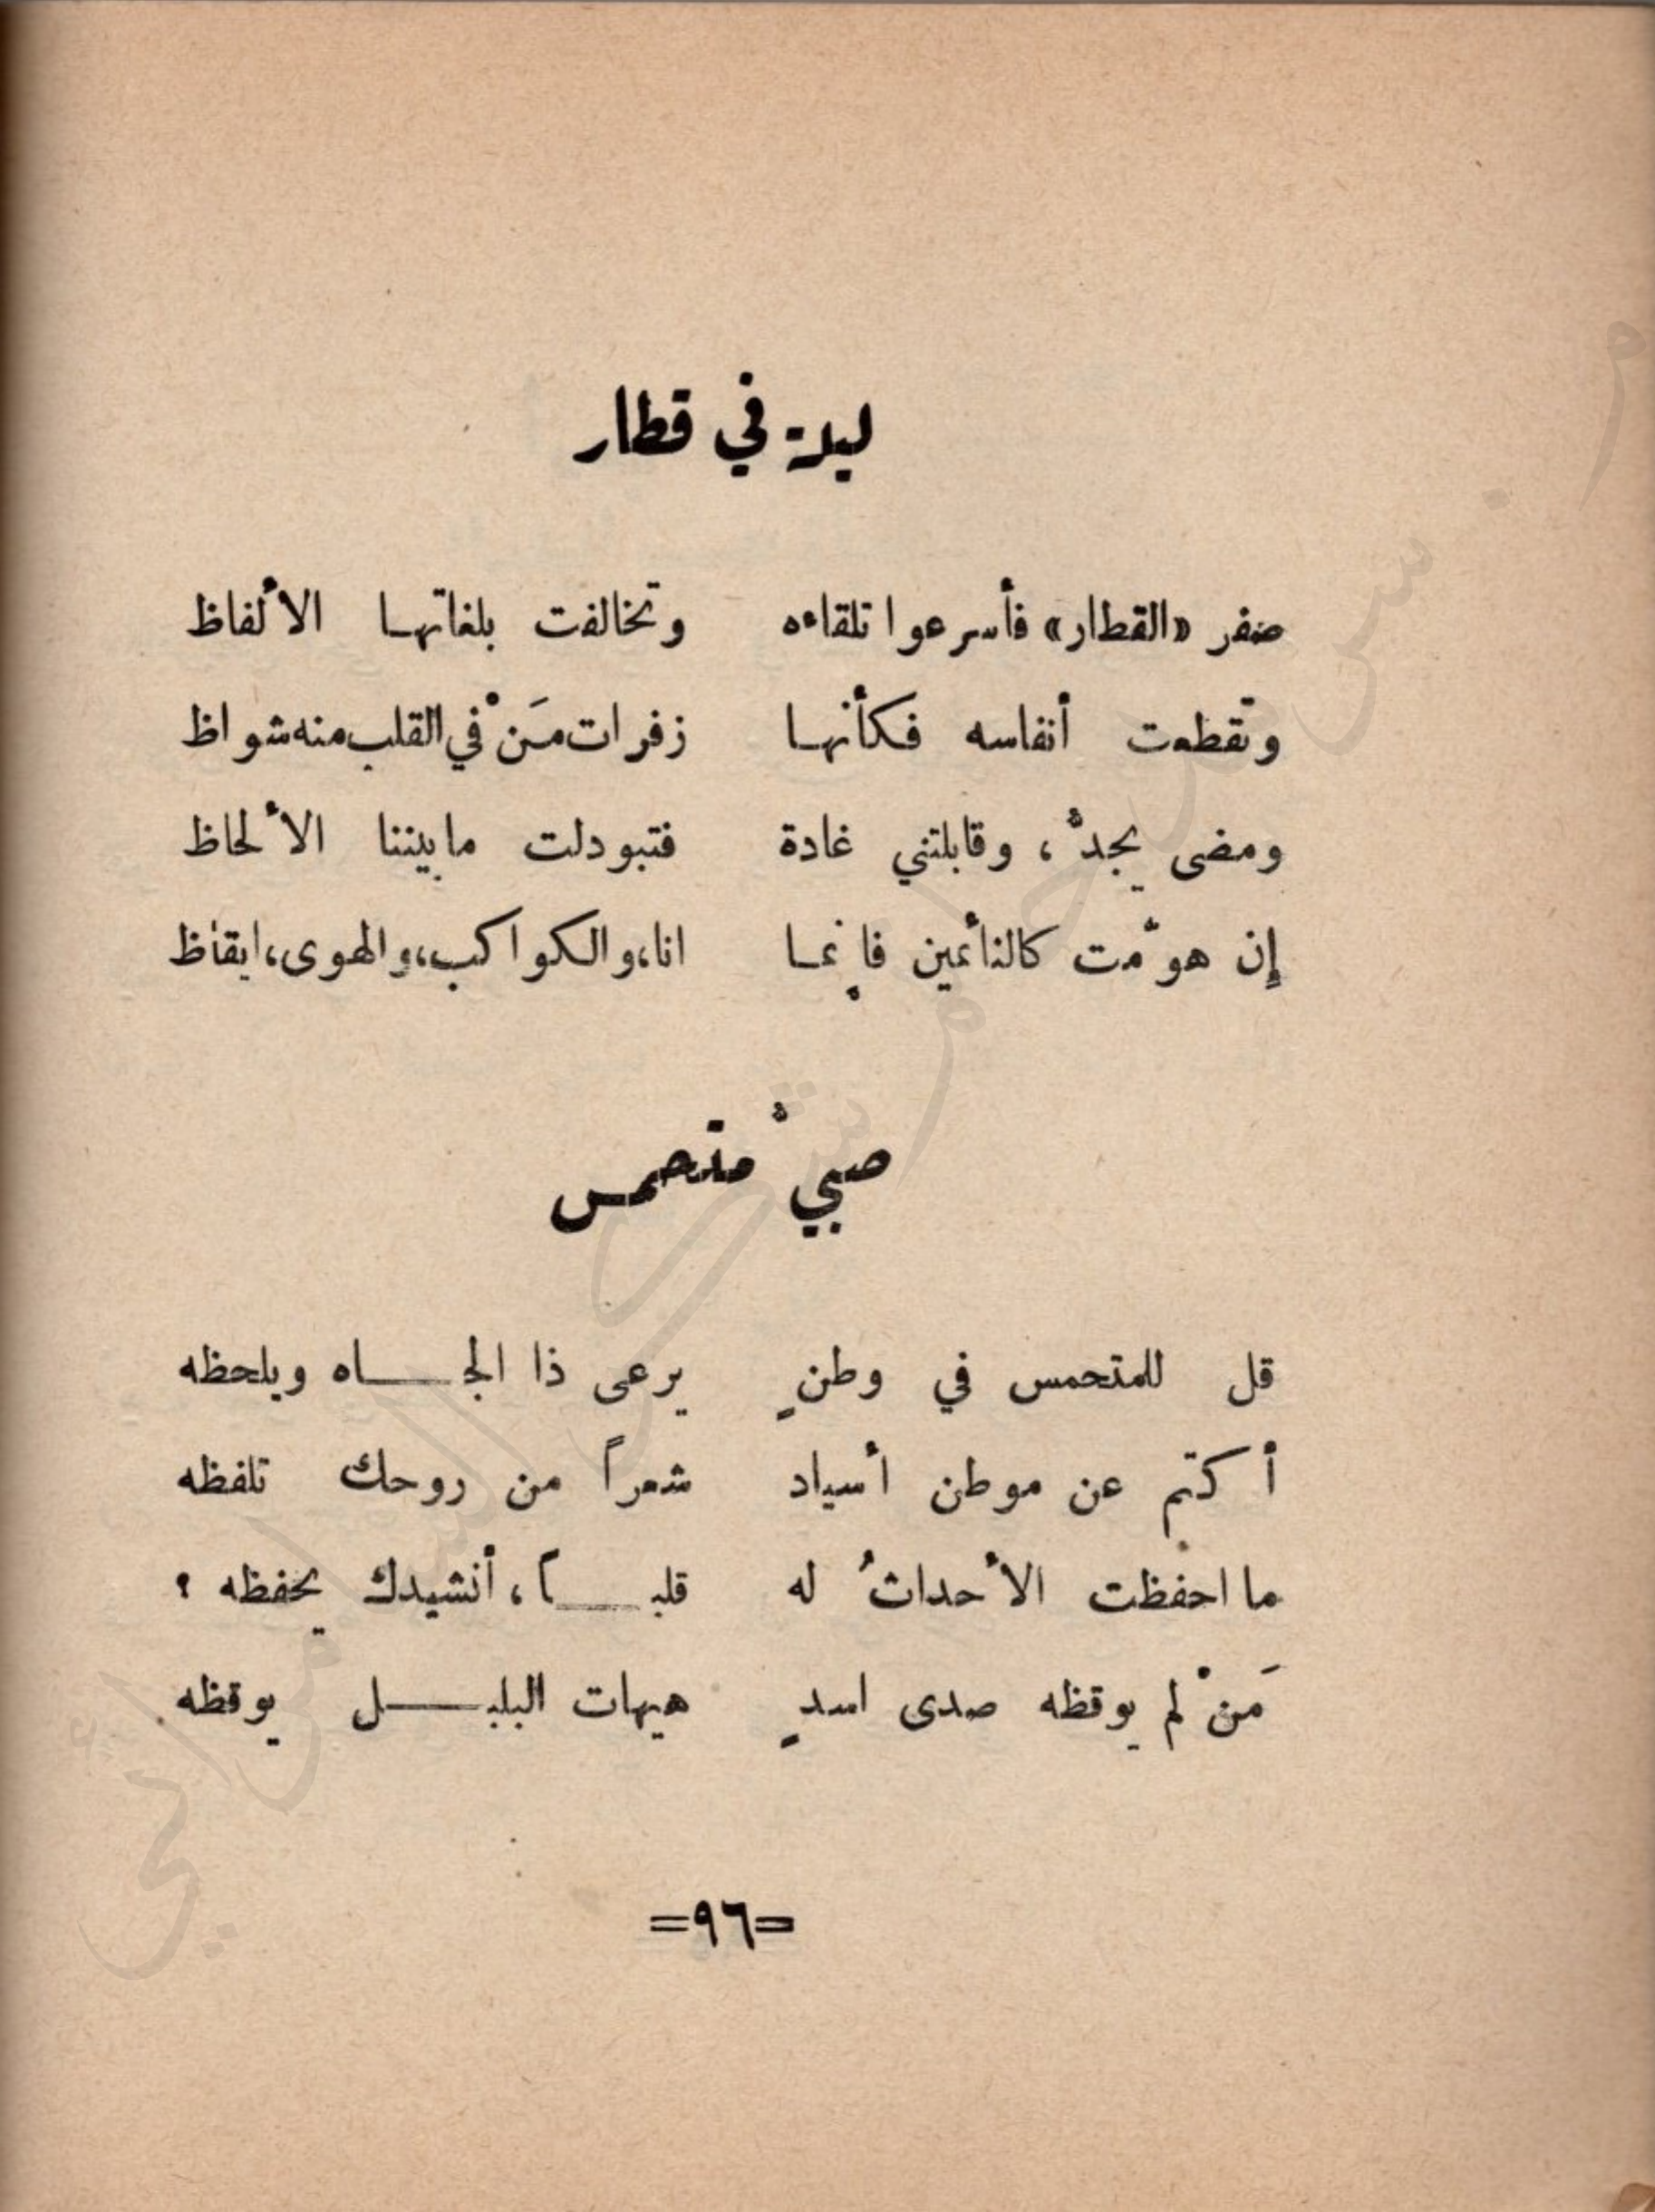 ليلة في قطار
صفر «القطار» فأسرعوا تلقاءه وتخالفت بلغاتها الألفاظ
وتقطعت أنفاسه فكأنها زفرات مَنْ في القلب منه شواظ
ومضى يجدُّ، وقابلتني غادة فتبودلت ما بيننا الألحاظ
إن هوّمت كالنائمين فإنما انا، والكواكب، والهوى، ايقاظ
صبيٌّ متحمس
قل للمتحمس في وطنٍ يرعى ذا الجاه ويلحظه
أكتم عن موطن أسياد شعراً من روحك تلفظه
ما احفظت الأحداثُ له قلباً، أنشيدك يحفظه ؟
مَنْ لم يوقظه صدى اسدٍ هيهات البلبل يوقظه
=٩٦=